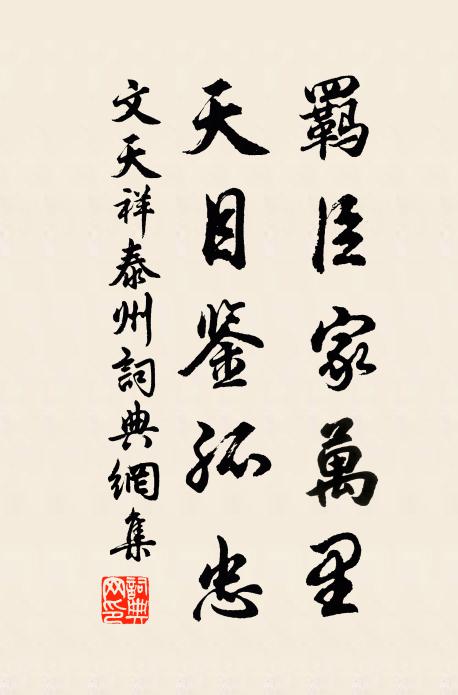 羈臣家萬里
天目鉴孤忠
文天祥泰州詞典網集
詞典网印